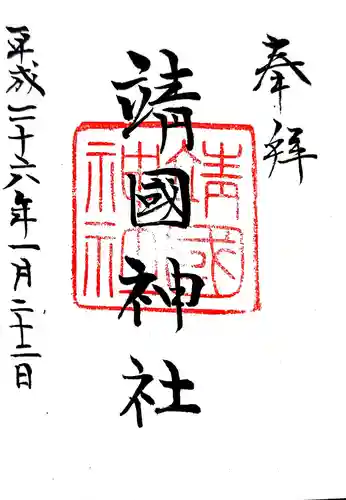 奉拝
靖國神社
靖國
神社
平成二十六年一月二十二日